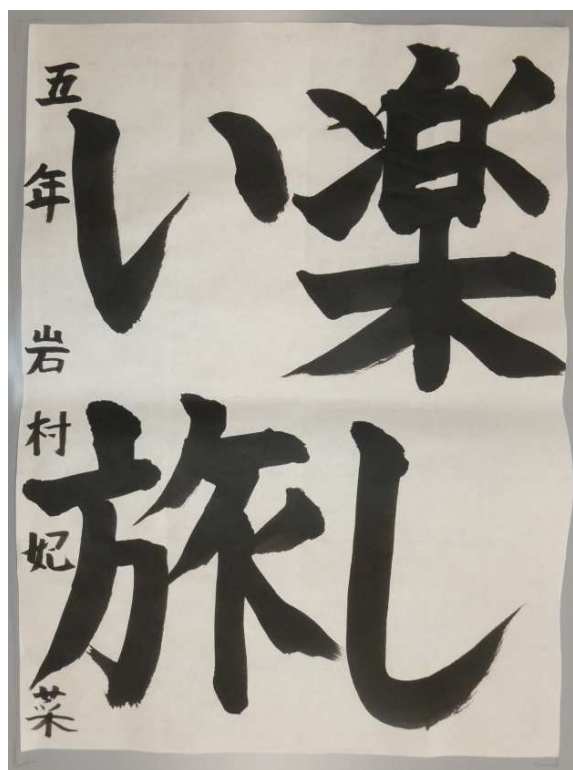 楽し
い旅
五年 岩村妃菜